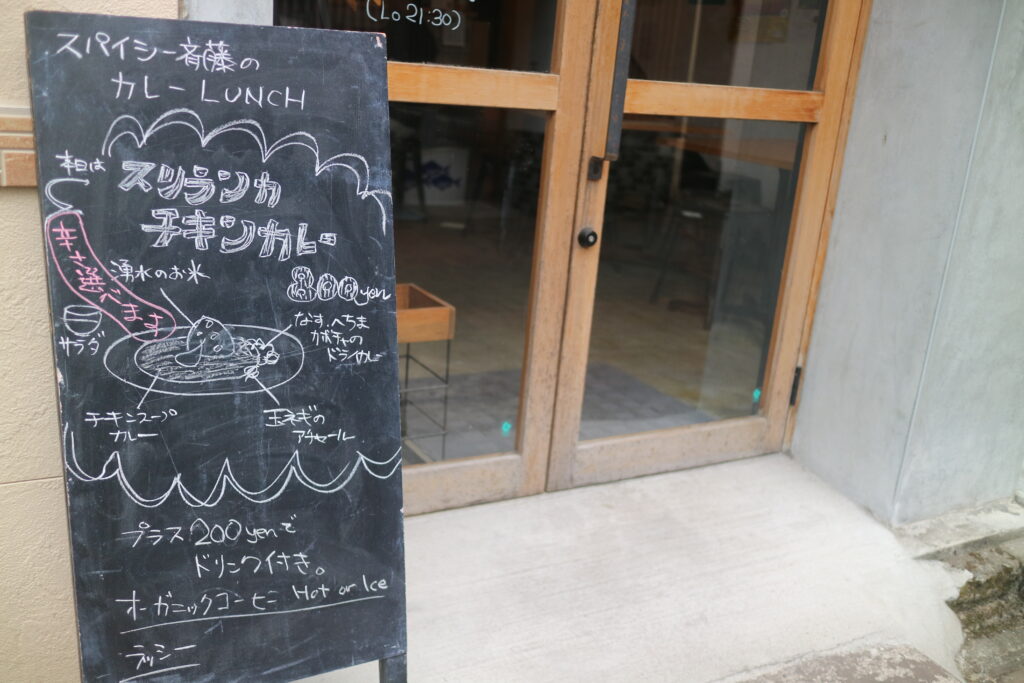 (Lo 21:30)
スパイシー斉藤の
カレー LUNCH
本日は
スリランカ
チキンカレー
辛さ選べます
湧水のお米
yen
サラダ
なす、へちま
カボチャの
ドライカレー
チキンスープ
カレー
玉ネギの
アチャール
プラス 200yenで
ドリンク付き。
オーガニックコーヒー Hot or Ice
ラッシー